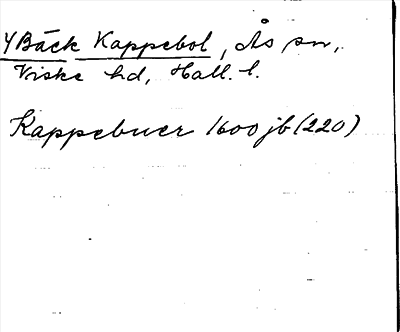 YBäck Kappebol, Ås sn,
Viske hd, Hall. l.
Kappebuer 1600 jb (220)